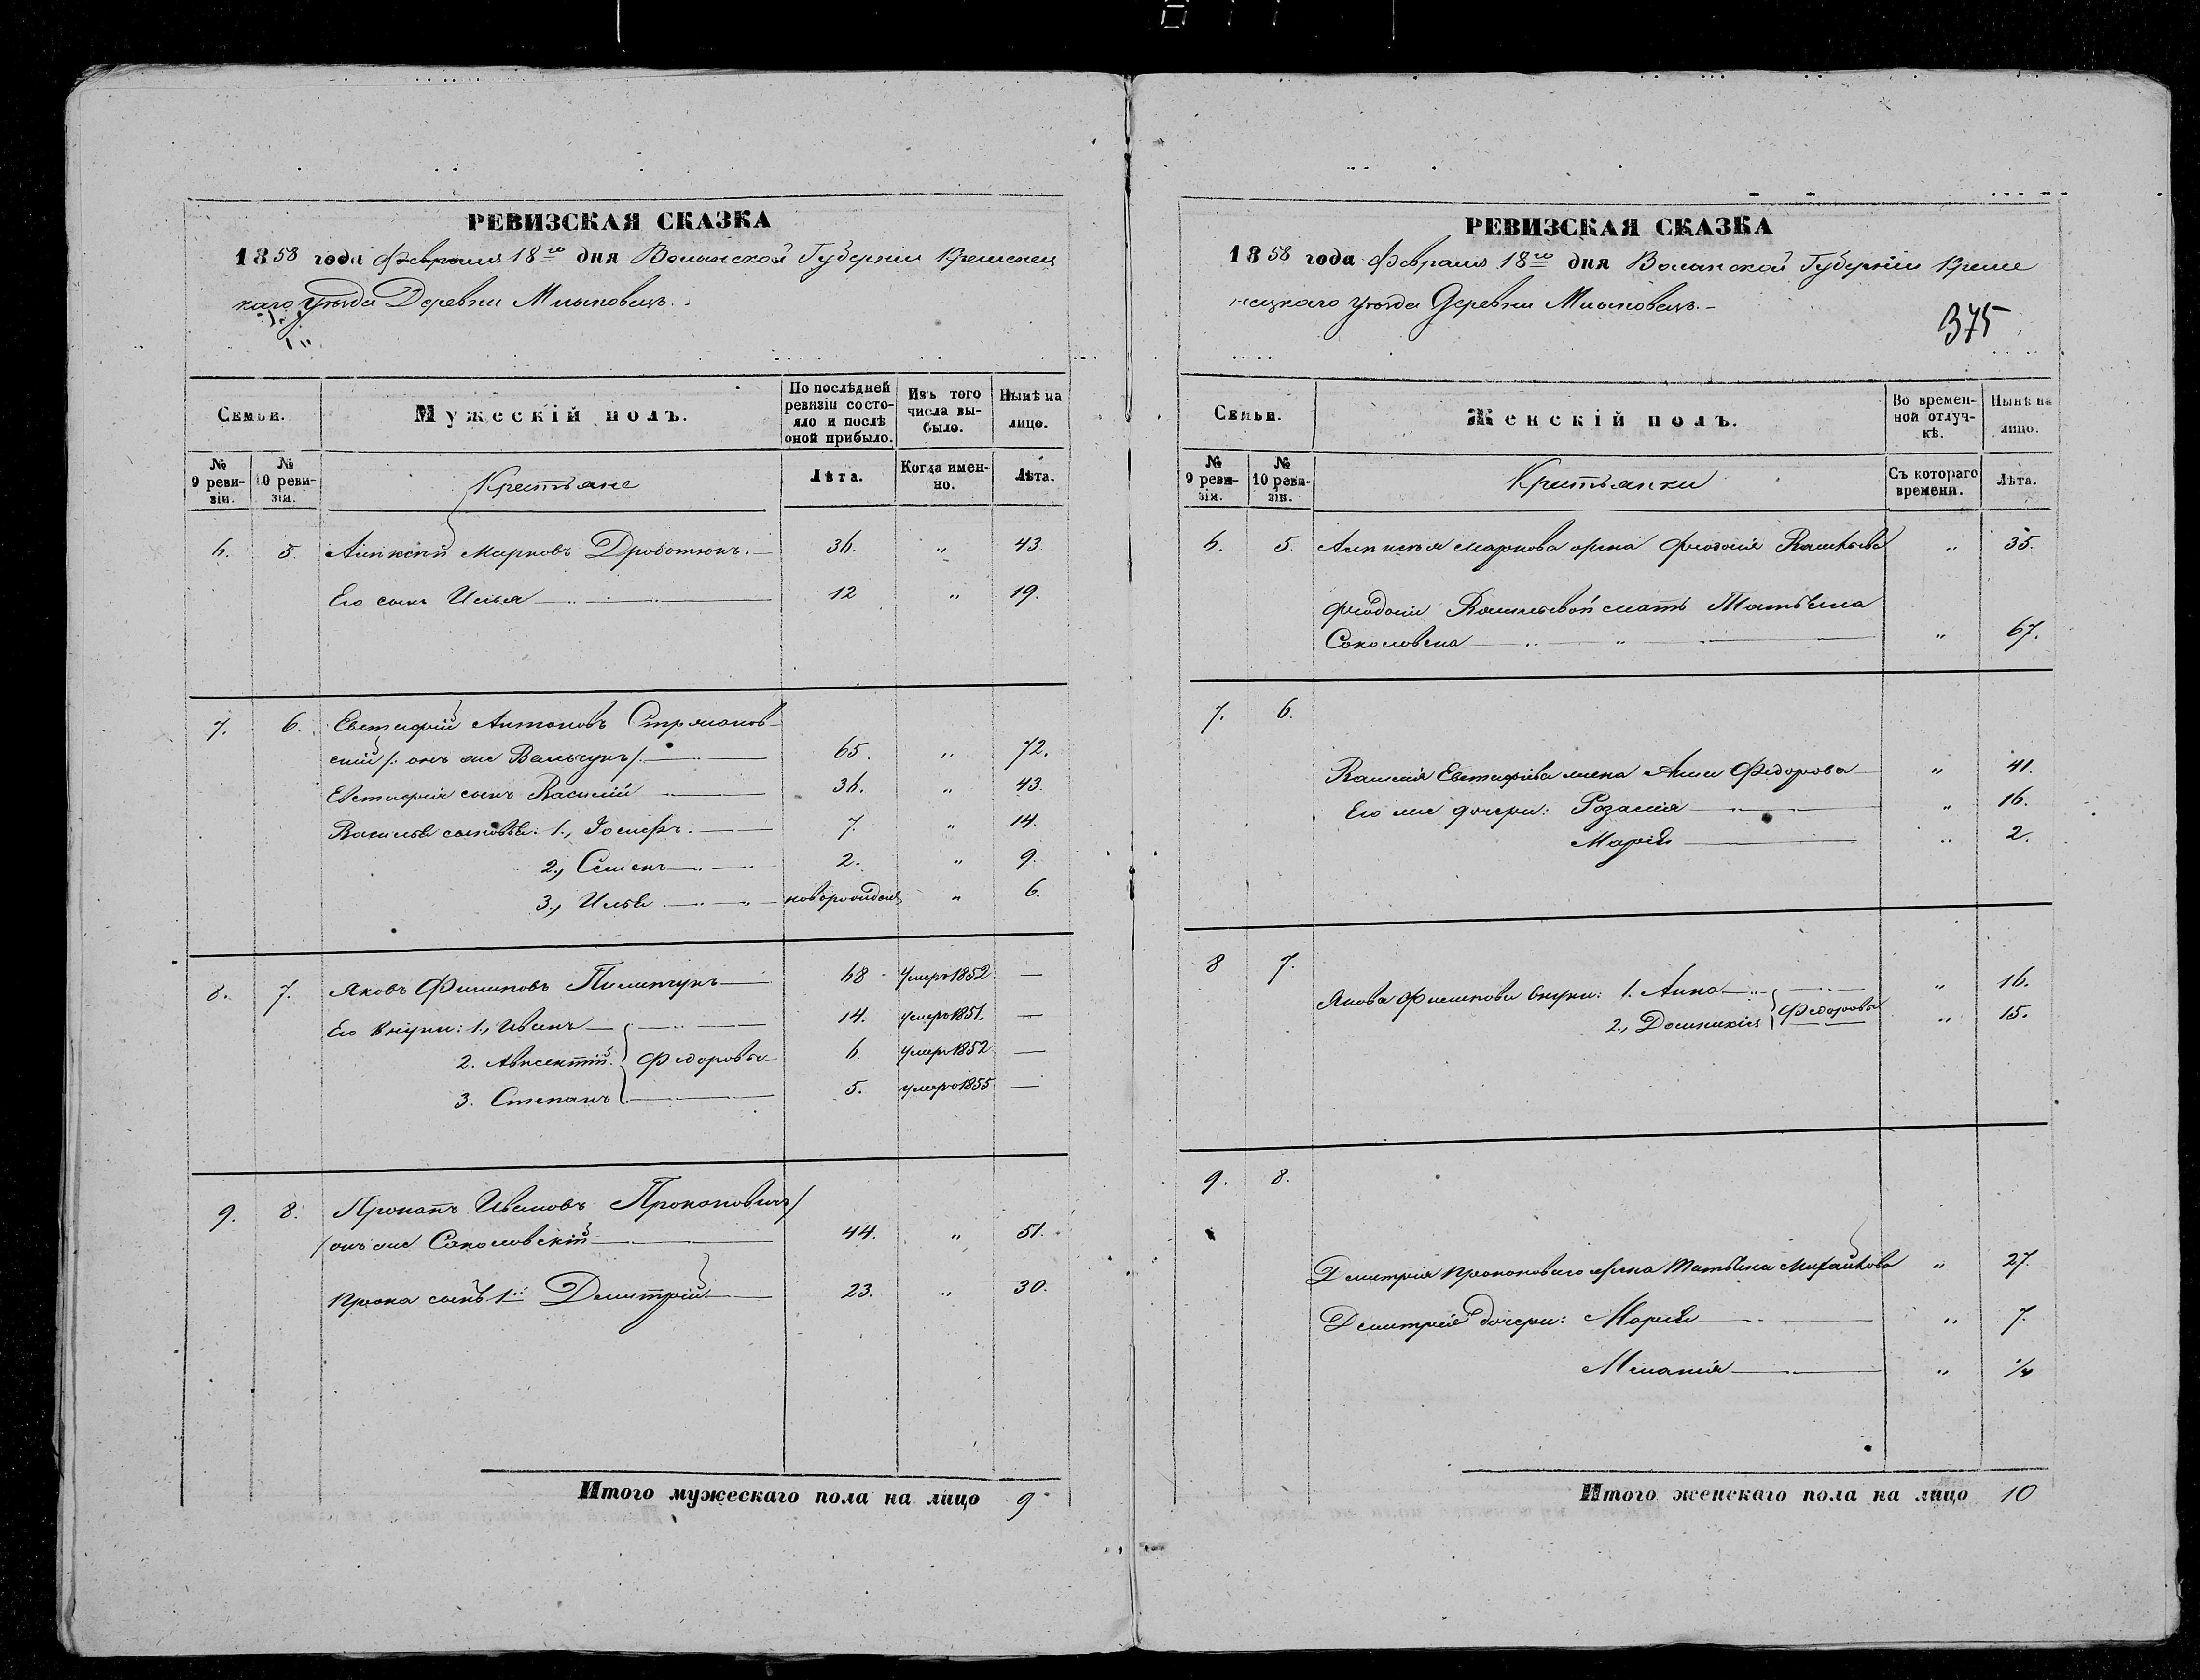 РЕВИЗСКАЯ СКАЗКА
1858 года Февраля 18го дня Волынской Губерніи Кременец
каго уѣзда Деревни Млыновецъ.
Семьи.
Мужескій полъ.
По послѣдней ревизіи состояло и послѣ оной прибыло.
Изъ того числа выбыло.
Нынѣ на лицо.
№ 9 ревизіи.
№ 10 ревизіи.
Крестьяне
Лѣта.
Когда именно.
Лѣта.
6. 5. Алексѣй Марковъ Дроботюкъ. 36. „ 43.
Его сынъ Илья 12 „ 19.
7. 6. Евстафій Антоновъ
скій /: онъ же 65. „ 72.
Евстафія сынъ Василій 36. „ 43.
Василья сыновья: 1., Іосифъ. 7. „ 14.
2., Семенъ 2. „ 9.
3., Илья новорожден „ 6.
8. 7. Яковъ Филиповъ Пилипчукъ 68 умеръ 1852 —
Его внуки: 1., Иванъ 14. умеръ 1851. —
2. Авксентій Федоровы 6 умеръ 1852 —
3. Степанъ 5. умеръ 1855 —
9. 8. Прокопъ Ивановъ Прокоповичъ /
/ онъ же Соколовскій 44. „ 51.
сынъ 1й Дмитрій 23. „ 30.
Итого мужескаго пола на лицо 9
РЕВИЗСКАЯ СКАЗКА
1858 года Февраля 18го дня Волынской Губерніи Креме
нецкаго уѣзда Деревни Млыновецъ.
375
Семьи.
Женскій полъ.
Во временной отлучкѣ.
Нынѣ на лицо.
№ 9 ревизіи.
№ 10 ревизіи.
Крестьянки
Съ котораго времени.
Лѣта.
6. 5. Алексѣя Маркова жена Феодосія Васильева „ 35.
Феодосіи Васильевой мать Татьяна
Соколовска „ 67.
7. 6.
Василія Евстафіева жена Анна Федорова „ 41.
Его же дочери: Розалія „ 16.
Марія „ 2.
8 7.
Якова Филипова внуки: 1. Анна „ 16.
2., Доминикія Федоровы „ 15.
9. 8.
Дмитрія жена Татьяна Михайлова „ 27.
Дмитрія дочери: Марія „ 7.
Меланія „
Итого женскаго пола на лицо 10